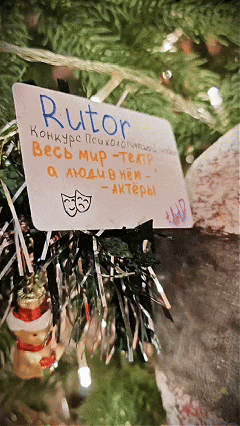 Rutor
Конкурс Психологический
Весь мир - театр
а люди в нём -
- актёры